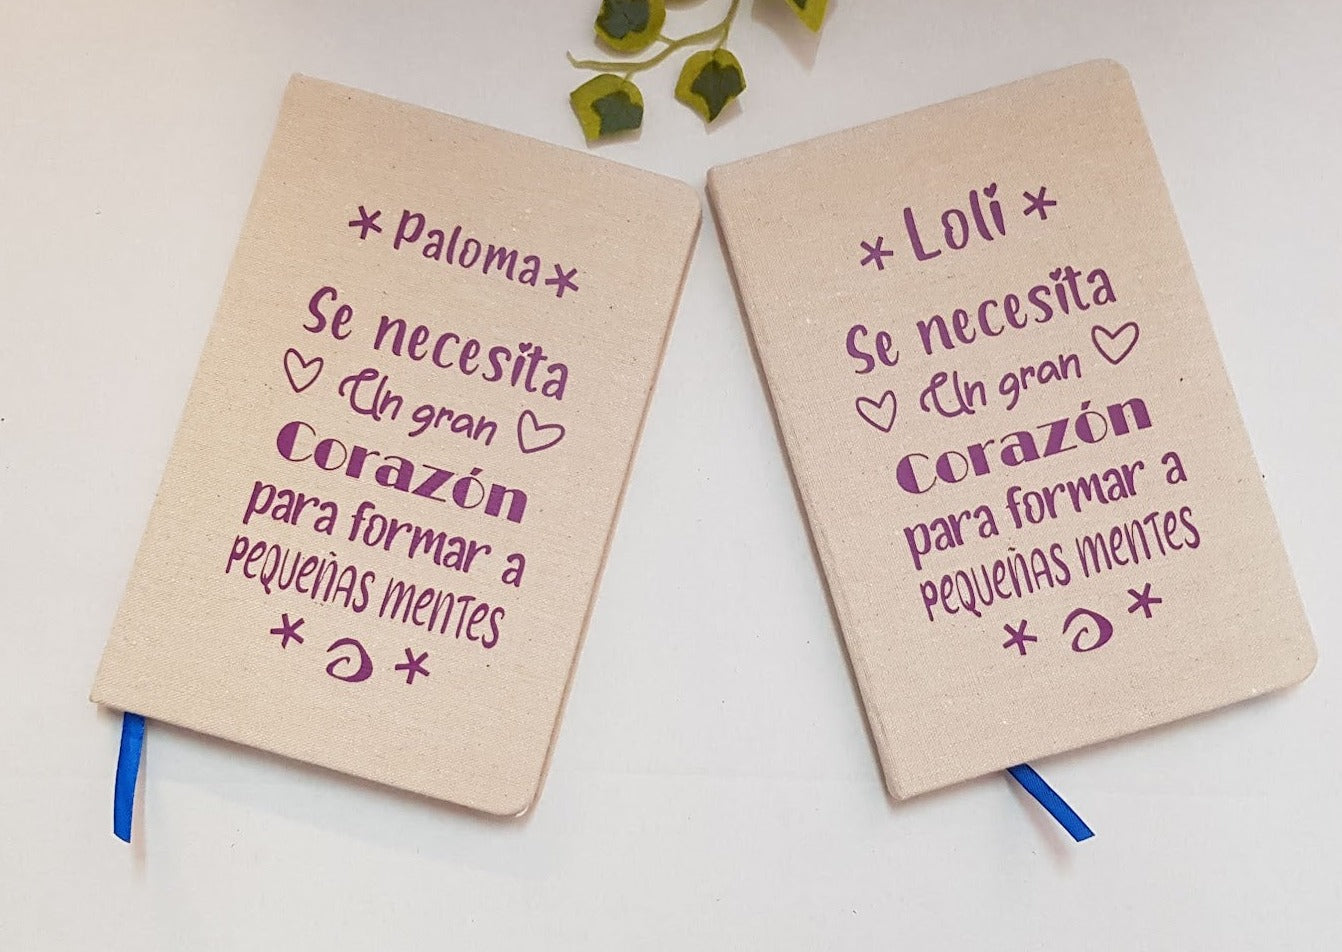 Paloma
Se necesita
Un gran
Corazón
para formar a
PEQUEÑAS MENTES
Loli
Se necesita
Un gran
Corazón
para formar a
PEQUEÑAS MENTES